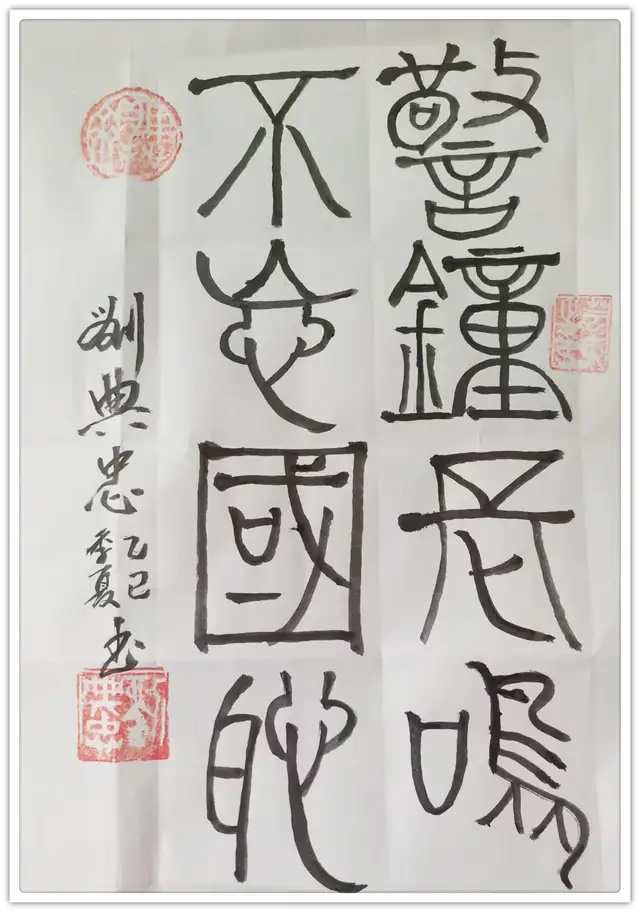 警鐘長鳴
不忘國恥
劉典忠 乙巳季夏 书
劉典忠